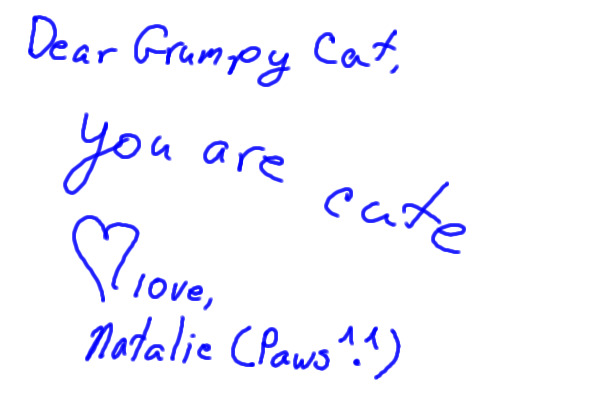 Dear Grumpy Cat,
you are cute
♡ love,
Natalie (Paws^.^)